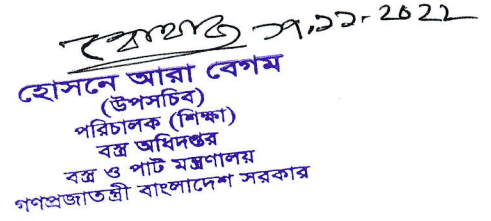 ২৭.১১.2022
হোসনে আরা বেগম
(উপসচিব)
পরিচালক (শিক্ষা)
বস্ত্র অধিদপ্তর
বস্ত্র ও পাট মন্ত্রণালয়
গণপ্রজাতন্ত্রী বাংলাদেশ সরকার